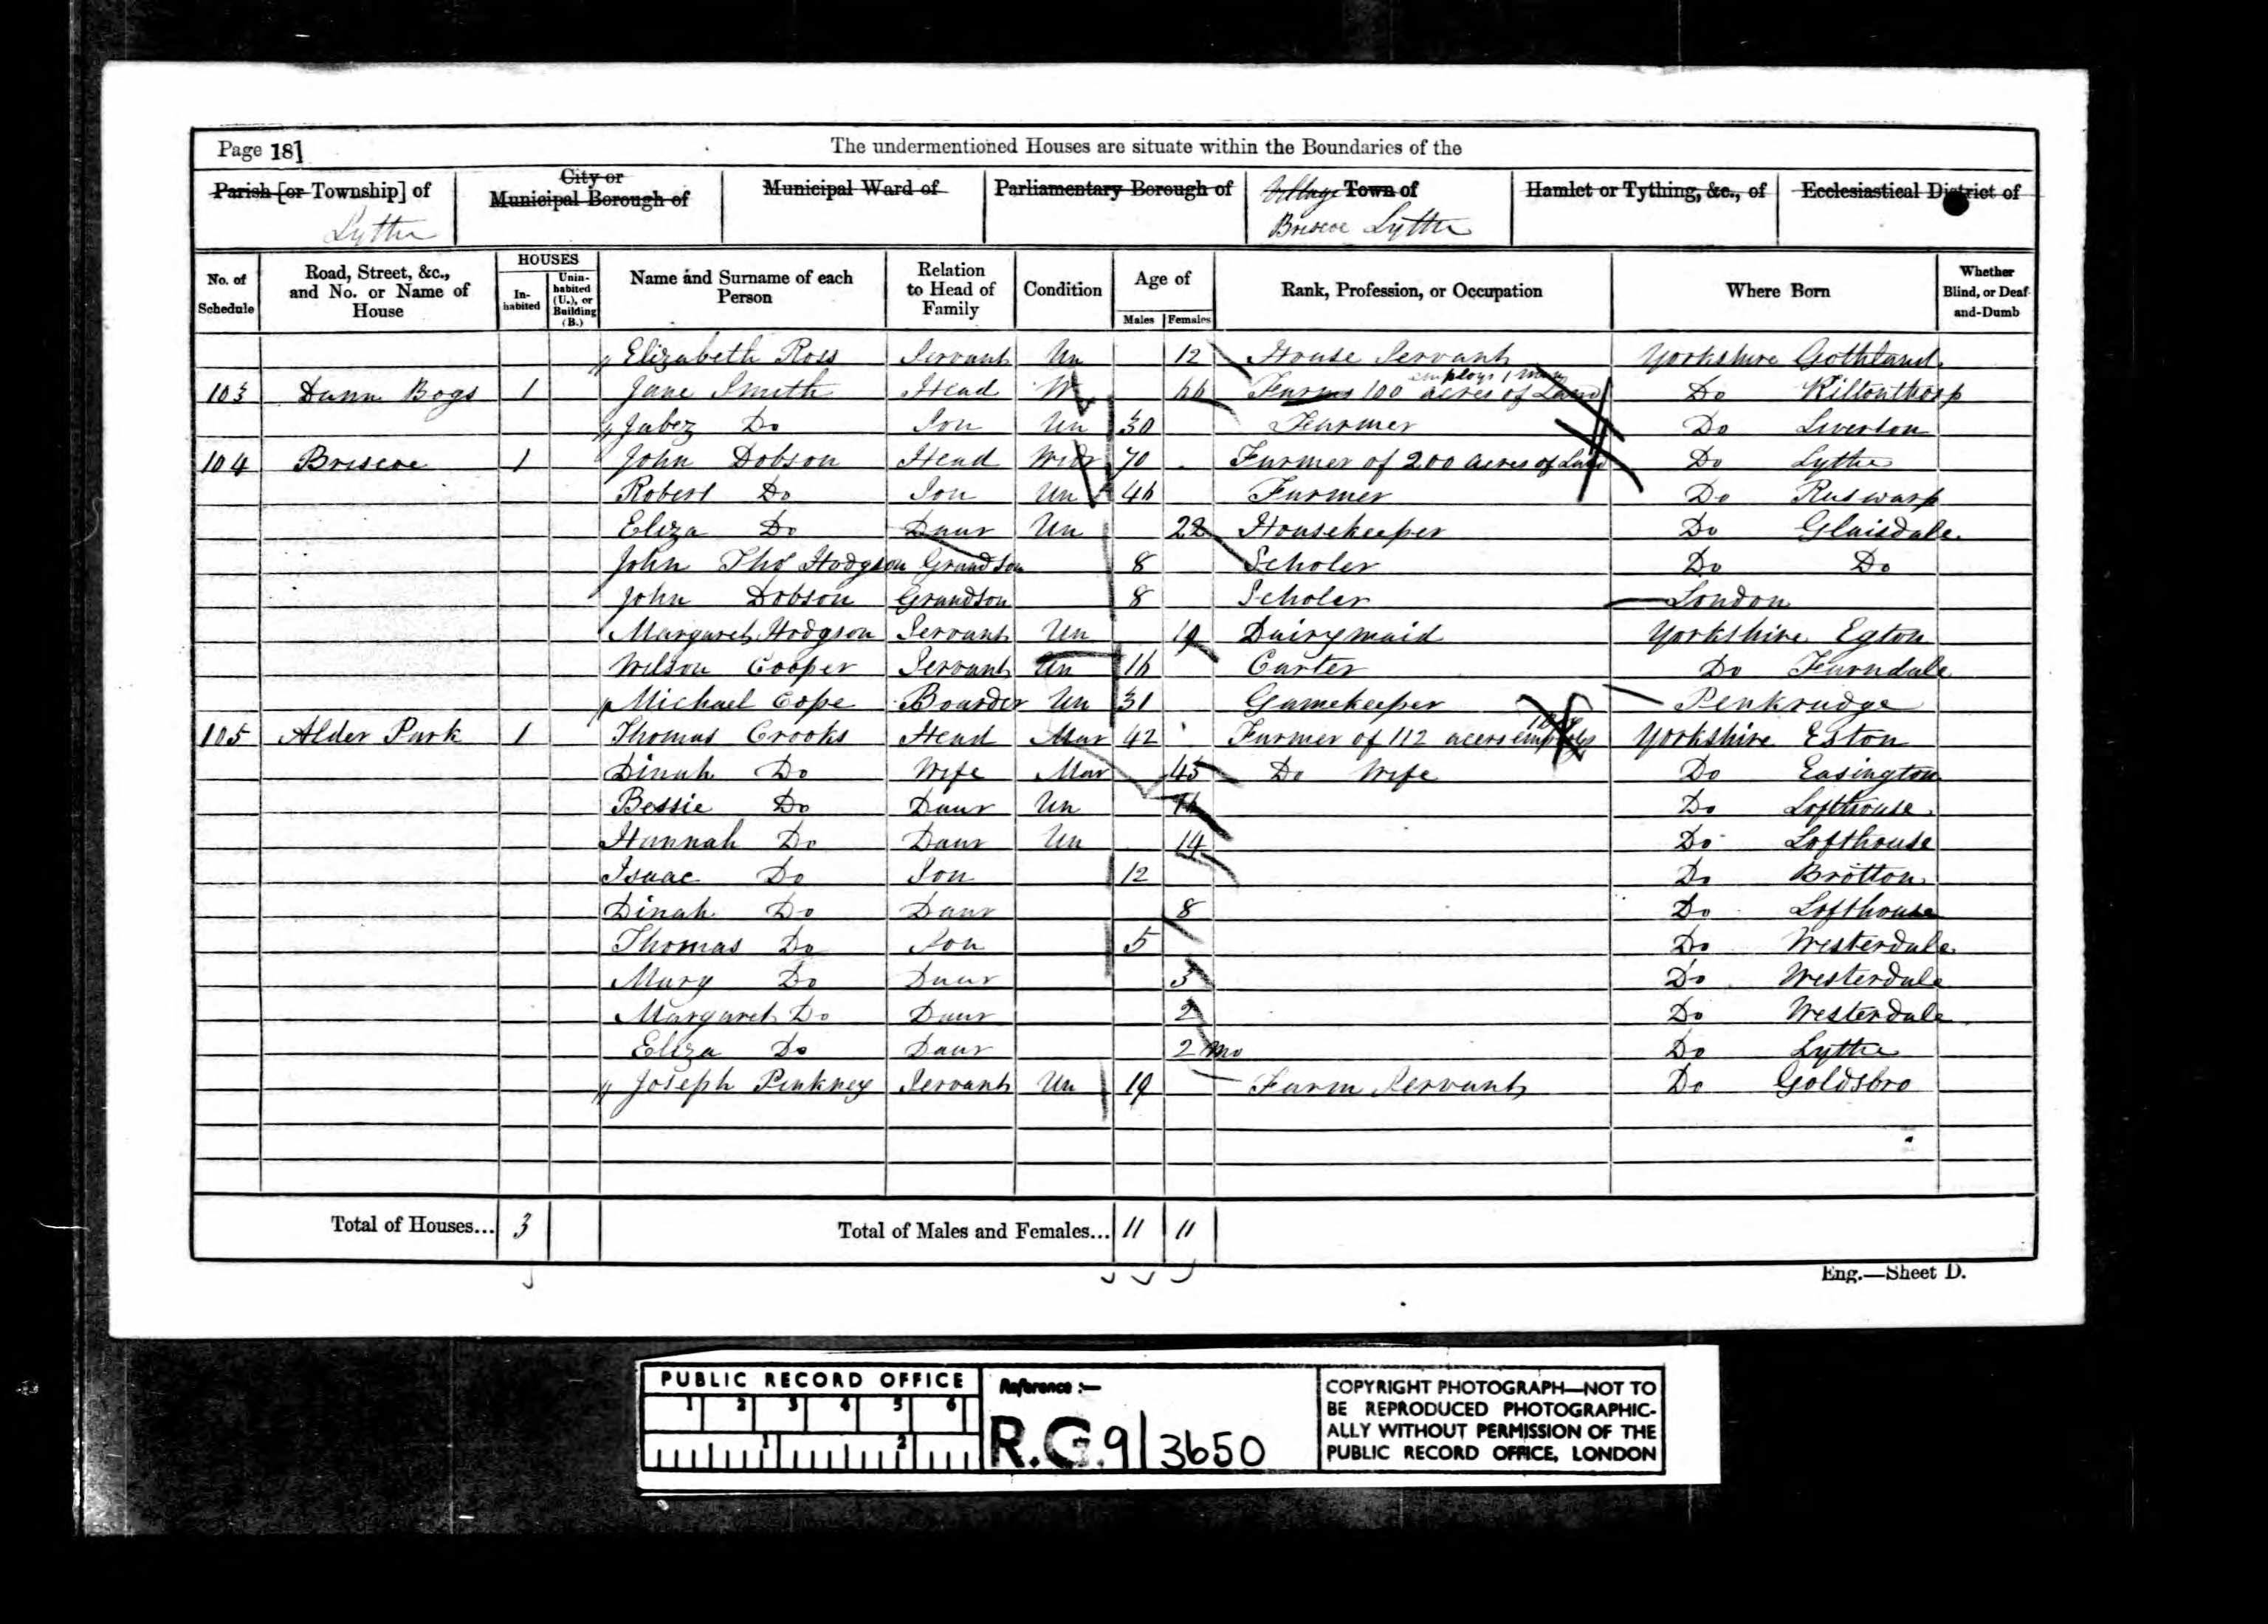 Page 18]
The undermentioned Houses are situate within the Boundaries of the
Parish [or Township] of
City or Municipal Borough of
Municipal Ward of
Parliamentary Borough of
Village Town of
Hamlet or Tything, &c., of
Ecclesiastical District of
Lythe
Briscoe Lythe
No. of Schedule
Road, Street, &c., and No. or Name of House
HOUSES
Inhabited
Uninhabited (U.), or Building (B.)
Name and Surname of each Person
Relation to Head of Family
Condition
Age of
Males
Females
Rank, Profession, or Occupation
Where Born
Whether Blind, or Deaf-and-Dumb
Elizabeth Ross Servant Un 12 House Servant Yorkshire Gothland
103 Dunn Bogs 1 Jane Smith Head W 66 Farms 100 acres of Land employs 1 man Do Kiltonthorp
Jabez Do Son Un 30 Farmer Do Liverton
104 Briscoe 1 John Dobson Head Widr 70 Farmer of 200 acres of Land Do Lythe
Robert Do Son Un 46 Farmer Do Ruswarp
Eliza Do Daur Un 22 Housekeeper Do Glaisdale
John Thos Hodgson Grandson 8 Scholer Do Do
John Dobson Grandson 8 Scholer London
Margaret Hodgson Servant Un 19 Dairymaid Yorkshire Egton
Wilson Cooper Servant Un 16 Carter Do Farndale
Michael Cope Boarder Un 31 Gamekeeper Penkrudge
105 Alder Park 1 Thomas Crooks Head Mar 42 Farmer of 112 acers employs Yorkshire Eston
Dinah Do Wife Mar 45 Do Wife Do Easington
Bessie Do Daur Un 16 Do Lofthouse
Hannah Do Daur Un 14 Do Lofthouse
Isaac Do Son 12 Do Brotton
Dinah Do Daur 8 Do Lofthouse
Thomas Do Son 5 Do Westerdale
Mary Do Daur 3 Do Westerdale
Margaret Do Daur 2 Do Westerdale
Eliza Do Daur 2 Mo Do Lythe
Joseph Pinkney Servant Un 19 Farm Servant Do Goldsbro
Total of Houses... 3
Total of Males and Females... 11 11
Eng.—Sheet D.
PUBLIC RECORD OFFICE
1 2 3 4 5 6
1 2
Reference :—
R.G. 9/3650
COPYRIGHT PHOTOGRAPH—NOT TO
BE REPRODUCED PHOTOGRAPHIC-
ALLY WITHOUT PERMISSION OF THE
PUBLIC RECORD OFFICE, LONDON